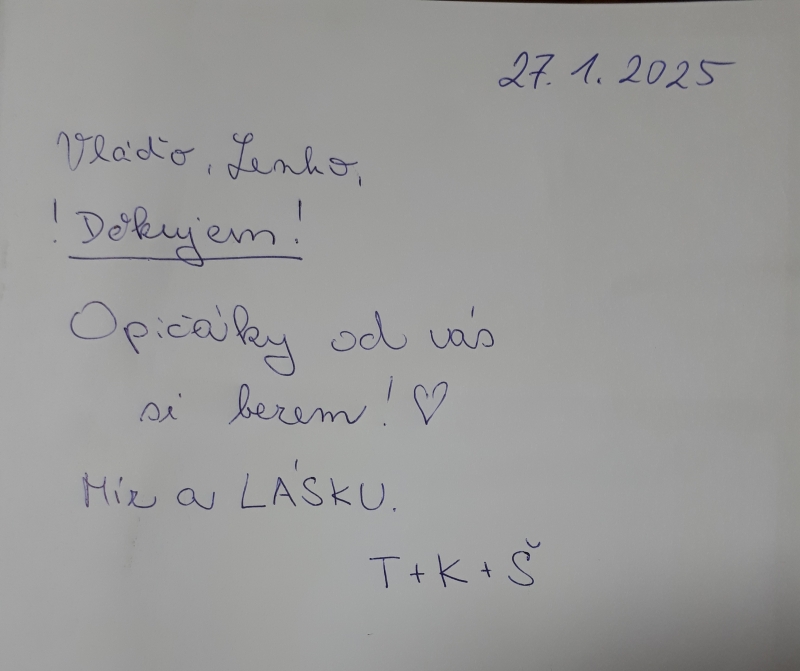 27. 1. 2025
Vláďo, Lenko,
! Děkujem!
Opičáky od vás
si berem! ♡
Mír a LÁSKU.
T + K + Š